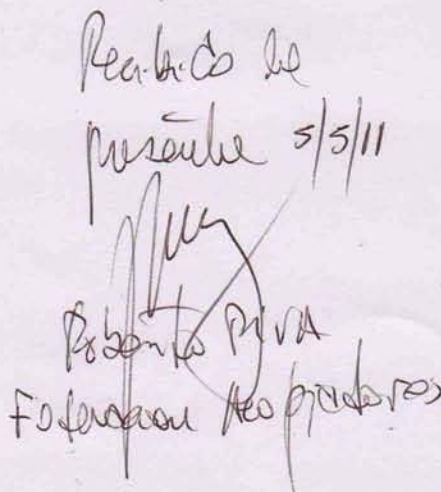 Recibido la
presente 5/5/11
Roberto RIVA
Federacion Acopiadores